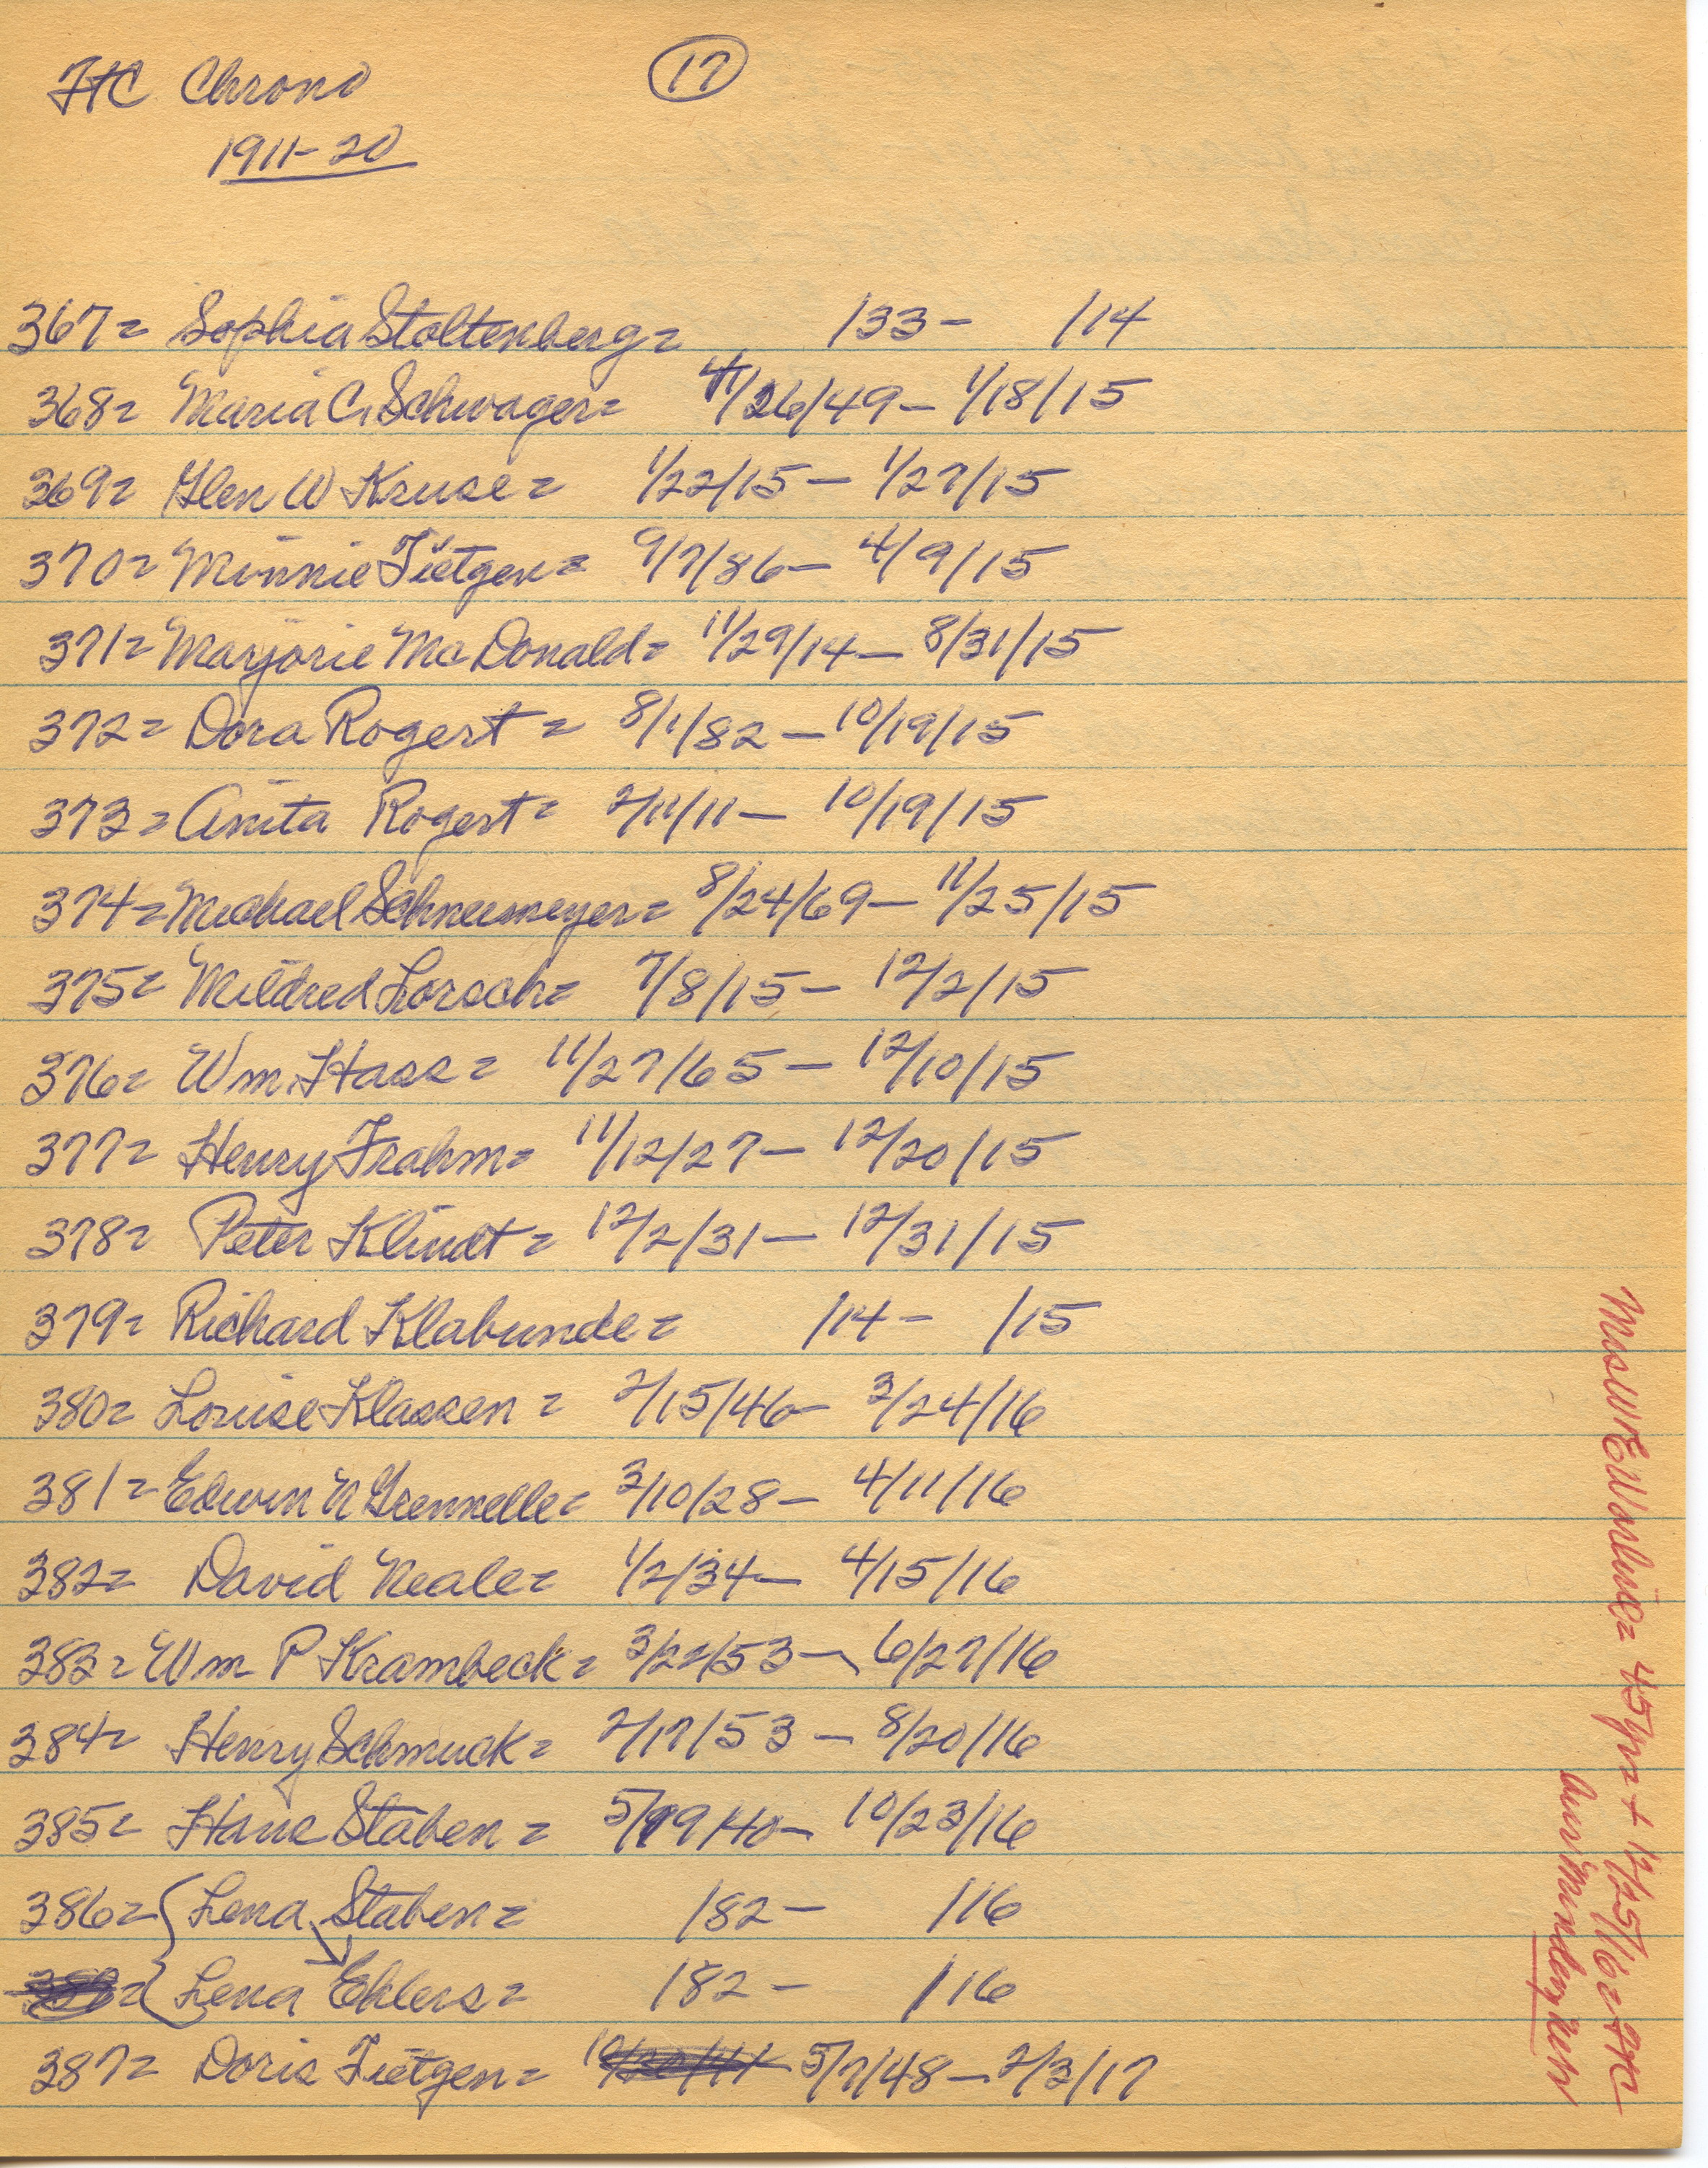 FtC Chrono
17
1911-20
367= Sophia Stoltenberg= /33- /14
368= Maria C. Schwager= /26/49- 1/18/15
369= Glen W Kruse= 1/22/15- 1/27/15
370= Minnie Tietgen= 9/7/86- 4/9/15
371= Marjorie McDonald= 11/29/14- 8/31/15
372= Dora Rogert= 8/1/82- 10/19/15
373= Anita Rogert= 2/11/11- 10/19/15
374= Michael Schneemeyer= 8/24/69- 11/25/15
375= Mildred Lorsch= 7/8/15- 12/2/15
376= Wm. Hass= 11/27/65- 12/10/15
377= Henry Frahm= 11/12/27- 12/20/15
378= Peter Klindt= 12/2/31- 12/31/15
379= Richard Klabunde= /14- /15
380= Louise Klassen= 2/15/46- 3/24/16
381= Edwin N Grennelle= 3/10/28- 4/11/16
382= David Neale= 1/2/34- 4/15/16
383= Wm P Krambeck= 3/22/53- 6/27/16
384= Henry Schmuck= 2/17/53- 8/20/16
385= Hans Staben= 5/19/40- 10/23/16
386= Lena Staben= /82- /16
Lena Ehlers= /82- /16
387= Doris Tietgen= 5/7/48- 2/3/17
45yrs+ 1/25/16=FtC